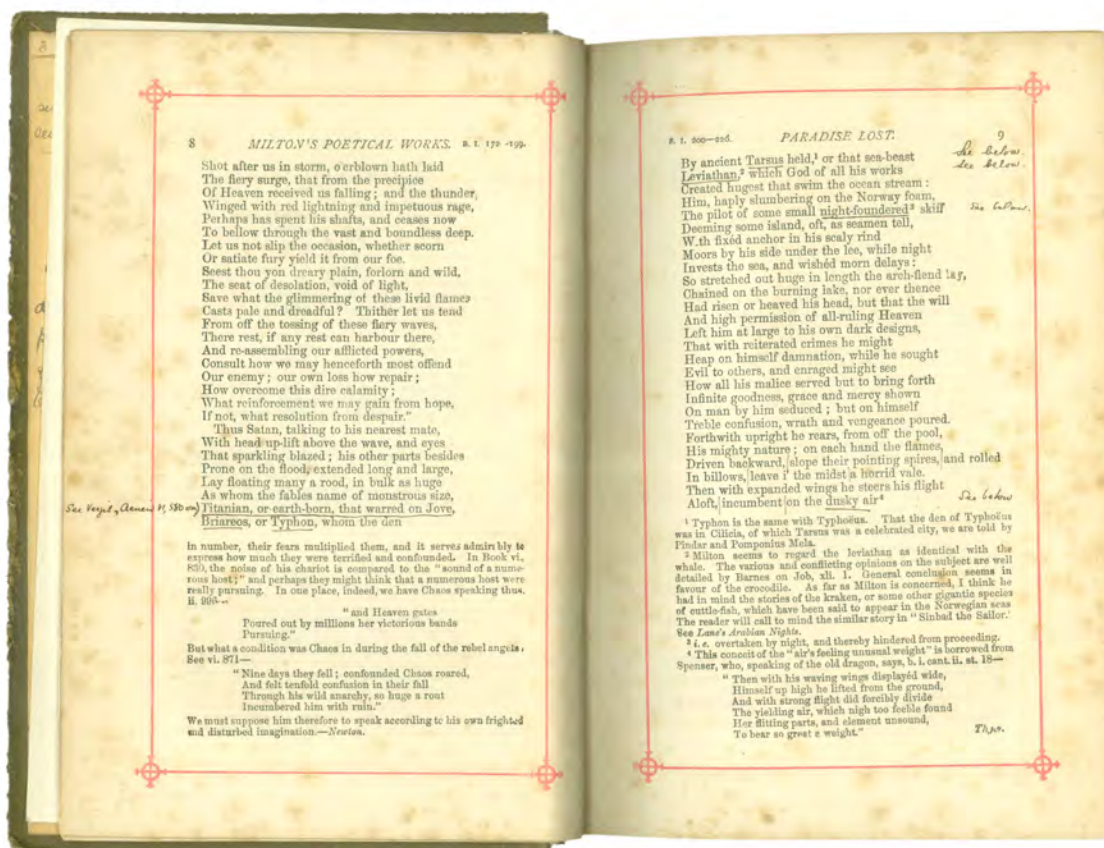 8 MILTON'S POETICAL WORKS. B. I. 172-199.
Shot after us in storm, o'erblown hath laid
The fiery surge, that from the precipice
Of Heaven received us falling; and the thunder,
Winged with red lightning and impetuous rage,
Perhaps has spent his shafts, and ceases now
To bellow through the vast and boundless deep.
Let us not slip the occasion, whether scorn
Or satiate fury yield it from our foe.
Seest thou yon dreary plain, forlorn and wild,
The seat of desolation, void of light,
Save what the glimmering of these livid flames
Casts pale and dreadful? Thither let us tend
From off the tossing of these fiery waves,
There rest, if any rest can harbour there,
And re-assembling our afflicted powers,
Consult how we may henceforth most offend
Our enemy; our own loss how repair;
How overcome this dire calamity;
What reinforcement we may gain from hope,
If not, what resolution from despair."
Thus Satan, talking to his nearest mate,
With head up-lift above the wave, and eyes
That sparkling blazed; his other parts besides
Prone on the flood, extended long and large,
Lay floating many a rood, in bulk as huge
As whom the fables name of monstrous size,
See Vergil, Aeneid VI, 580 Titanian, or earth-born, that warred on Jove,
Briareos, or Typhon, whom the den
in number, their fears multiplied them, and it serves admirbly to
express how much they were terrified and confounded. In Book vi.
830, the noise of his chariot is compared to the "sound of a nume-
rous host;" and perhaps they might think that a numerous host were
really pursuing. In one place, indeed, we have Chaos speaking thus.
ii. 996—
"and Heaven gates
Poured out by millions her victorious bands
Pursuing."
But what a condition was Chaos in during the fall of the rebel angels.
See vi. 871—
"Nine days they fell; confounded Chaos roared,
And felt tenfold confusion in their fall
Through his wild anarchy, so huge a rout
Incumbered him with ruin."
We must suppose him therefore to speak according to his own frighted
and disturbed imagination.—Newton.
B. I. 200—226. PARADISE LOST. 9
By ancient Tarsus held,¹ or that sea-beast See below.
Leviathan,² which God of all his works See below.
Created hugest that swim the ocean stream:
Him, haply slumbering on the Norway foam,
The pilot of some small night-foundered³ skiff See below.
Deeming some island, oft, as seamen tell,
W.th fixéd anchor in his scaly rind
Moors by his side under the lee, while night
Invests the sea, and wishéd morn delays:
So stretched out huge in length the arch-fiend lay,
Chained on the burning lake, nor ever thence
Had risen or heaved his head, but that the will
And high permission of all-ruling Heaven
Left him at large to his own dark designs,
That with reiterated crimes he might
Heap on himself damnation, while he sought
Evil to others, and enraged might see
How all his malice served but to bring forth
Infinite goodness, grace and mercy shown
On man by him seduced; but on himself
Treble confusion, wrath and vengeance poured.
Forthwith upright he rears, from off the pool,
His mighty nature; on each hand the flames,
Driven backward, slope their pointing spires, and rolled
In billows, leave i' the midst a horrid vale.
Then with expanded wings he steers his flight
Aloft, incumbent on the dusky air⁴ See below
¹ Typhon is the same with Typhoëus. That the den of Typhoëus
was in Cilicia, of which Tarsus was a celebrated city, we are told by
Pindar and Pomponius Mela.
² Milton seems to regard the leviathan as identical with the
whale. The various and conflicting opinions on the subject are well
detailed by Barnes on Job, xli. 1. General conclusion seems in
favour of the crocodile. As far as Milton is concerned, I think he
had in mind the stories of the kraken, or some other gigantic species
of cuttle-fish, which have been said to appear in the Norwegian seas
The reader will call to mind the similar story in "Sinbad the Sailor."
See Lane's Arabian Nights.
³ i. e. overtaken by night, and thereby hindered from proceeding.
⁴ This conceit of the "air's feeling unusual weight" is borrowed from
Spenser, who, speaking of the old dragon, says, b. i. cant. ii. st. 18—
"Then with his waving wings displayéd wide,
Himself up high he lifted from the ground,
And with strong flight did forcibly divide
The yielding air, which nigh too feeble found
Her flitting parts, and element unsound,
To bear so great a weight." Thyer.